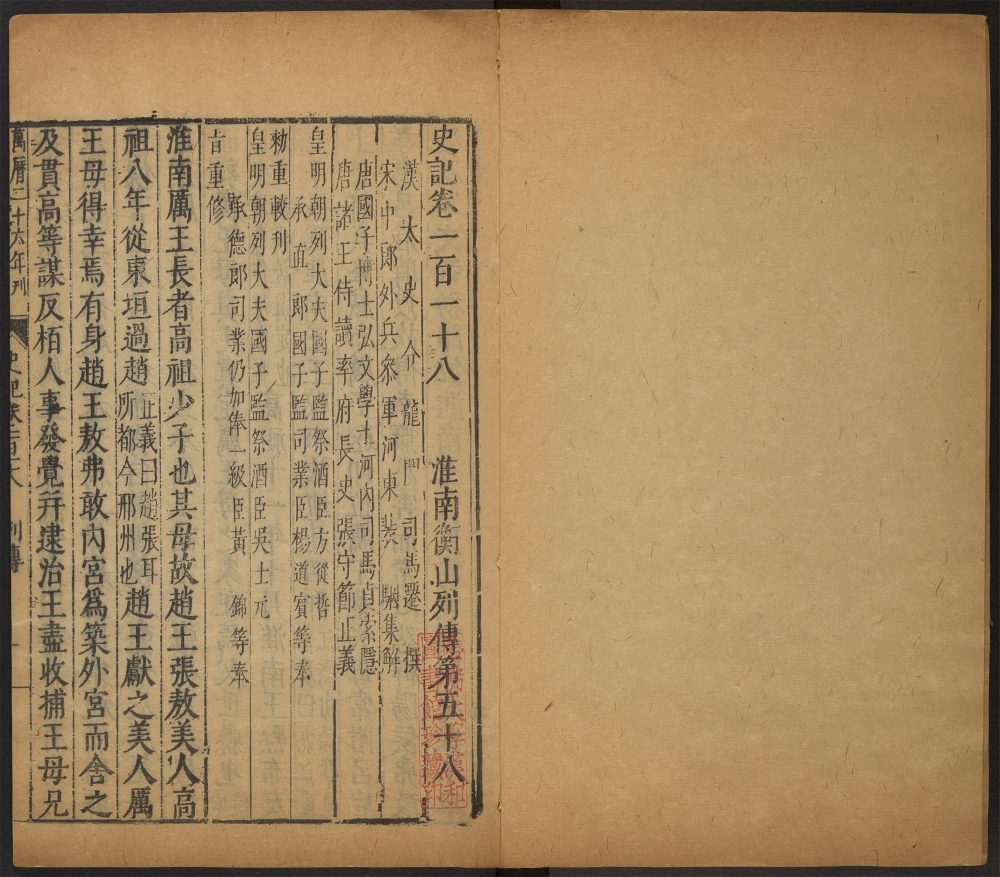 史記卷一百一十八　淮南衡山列傳第五十八
漢太史令龍門司馬遷撰
宋中郎外兵叅軍河東裴駰集解
唐國子博士弘文學士河內司馬貞索隱
唐諸王侍讀率府長史張守節正義
皇明朝列大夫國子監祭酒臣方從哲
承直郎國子監司業臣楊道賓等奉
勑重較刊
皇明朝列大夫國子監祭酒臣吳士元
承德郎司業仍加俸一級臣黃錦等奉
旨重修
淮南厲王長者高祖少子也其母故趙王張敖美人高
祖八年從東垣過趙正義曰趙張耳所都今邢州也趙王獻之美人厲
王母得幸焉有身趙王敖弗敢內宮為築外宮而舍之
及貫高等謀反栢人事發覺并逮治王盡收捕王母兄
萬曆二十六年刊　史記卷百十八　列傳　一